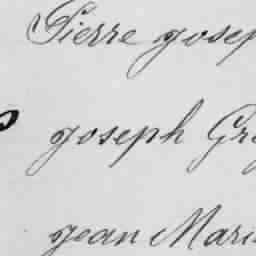 Pierre Josep
Joseph Gré
Jean Mari